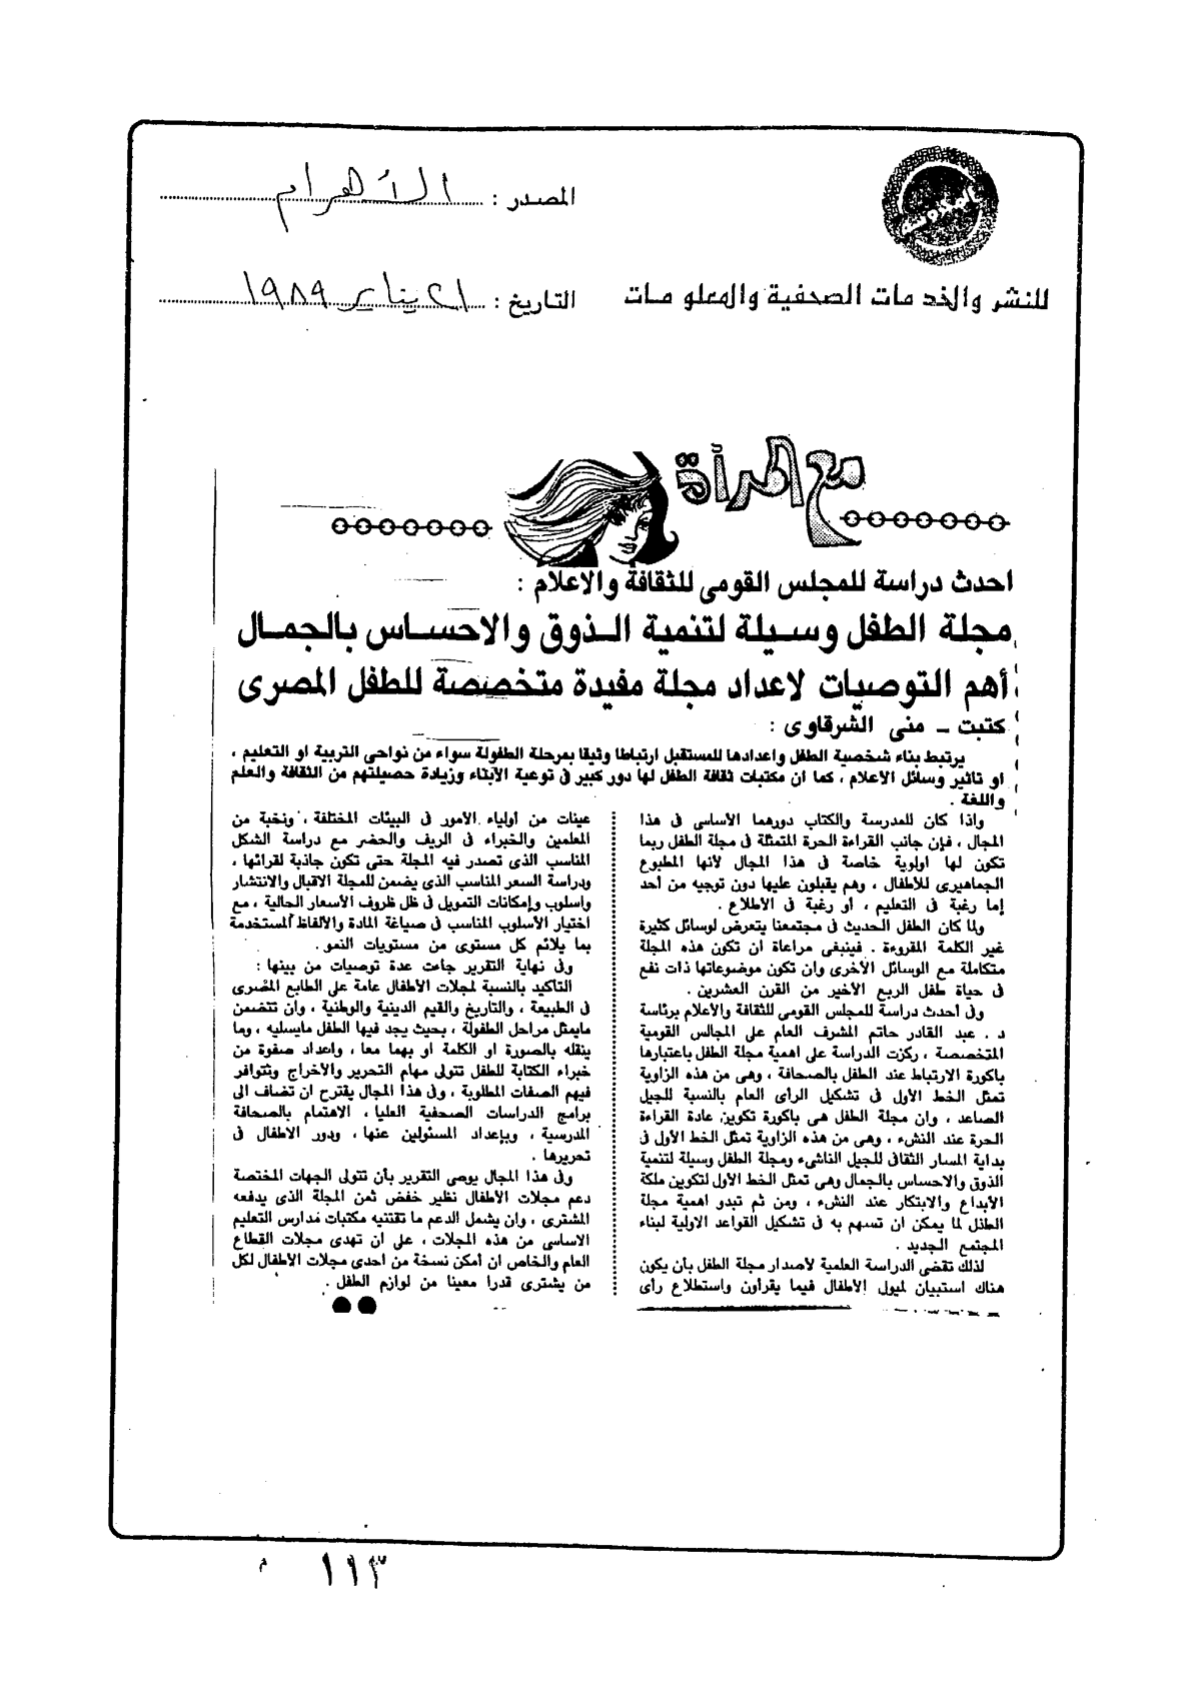 المصدر : الأهرام
للنشر والخدمات الصحفية والمعلومات
التاريخ : ٢١ يناير ١٩٨٩
مع المرأة
احدث دراسة للمجلس القومى للثقافة والاعلام :
مجلة الطفل وسيلة لتنمية الذوق والاحساس بالجمال
أهم التوصيات لاعداد مجلة مفيدة متخصصة للطفل المصرى
كتبت ـ منى الشرقاوى :
يرتبط بناء شخصية الطفل واعدادها للمستقبل ارتباطا وثيقا بمرحلة الطفولة سواء من نواحى التربية او التعليم ،
او تاثير وسائل الاعلام ، كما ان مكتبات ثقافة الطفل لها دور كبير فى توعية الأبناء وزيادة حصيلتهم من الثقافة والعلم
واللغة .
واذا كان للمدرسة والكتاب دورهما الأساسى فى هذا
المجال ، فإن جانب القراءة الحرة المتمثلة فى مجلة الطفل ربما
تكون لها اولوية خاصة فى هذا المجال لأنها المطبوع
الجماهيرى للأطفال ، وهم يقبلون عليها دون توجيه من أحد
إما رغبة فى التعليم ، أو رغبة فى الاطلاع .
ولما كان الطفل الحديث فى مجتمعنا يتعرض لوسائل كثيرة
غير الكلمة المقروءة . فينبغى مراعاة ان تكون هذه المجلة
متكاملة مع الوسائل الأخرى وان تكون موضوعاتها ذات نفع
فى حياة طفل الربع الأخير من القرن العشرين .
وفى أحدث دراسة للمجلس القومى للثقافة والأعلام برئاسة
د . عبد القادر حاتم المشرف العام على المجالس القومية
المتخصصة ، ركزت الدراسة على اهمية مجلة الطفل باعتبارها
باكورة الارتباط عند الطفل بالصحافة ، وهى من هذه الزاوية
تمثل الخط الأول فى تشكيل الرأى العام بالنسبة للجيل
الصاعد ، وان مجلة الطفل هى باكورة تكوين عادة القراءة
الحرة عند النشء ، وهى من هذه الزاوية تمثل الخط الأول فى
بداية المسار الثقافى للجيل الناشىء ومجلة الطفل وسيلة لتنمية
الذوق والاحساس بالجمال وهى تمثل الخط الأول لتكوين ملكة
الأبداع والابتكار عند النشء ، ومن ثم تبدو اهمية مجلة
الطفل لما يمكن ان تسهم به فى تشكيل القواعد الاولية لبناء
المجتمع الجديد .
لذلك تقضى الدراسة العلمية لأصدار مجلة الطفل بأن يكون
هناك استبيان لميول الأطفال فيما يقرأون واستطلاع رأى
عينات من اولياء الأمور فى البيئات المختلفة ، ونخبة من
المعلمين والخبراء فى الريف والحضر مع دراسة الشكل
المناسب الذى تصدر فيه المجلة حتى تكون جاذبة لقرائها ،
ودراسة السعر المناسب الذى يضمن للمجلة الاقبال والانتشار
واسلوب وإمكانات التمويل فى ظل ظروف الأسعار الحالية ، مع
اختيار الأسلوب المناسب فى صياغة المادة والألفاظ المستخدمة
بما يلائم كل مستوى من مستويات النمو .
وفى نهاية التقرير جاءت عدة توصيات من بينها :
التأكيد بالنسبة لمجلات الأطفال عامة على الطابع المصرى
فى الطبيعة ، والتاريخ والقيم الدينية والوطنية ، وان تتضمن
مايمثل مراحل الطفولة ، بحيث يجد فيها الطفل مايسليه ، وما
ينقله بالصورة او الكلمة او بهما معا ، واعداد صفوة من
خبراء الكتابة للطفل تتولى مهام التحرير والأخراج وتتوافر
فيهم الصفات المطلوبة ، وفى هذا المجال يقترح ان تضاف الى
برامج الدراسات الصحفية العليا ، الاهتمام بالصحافة
المدرسية ، وبإعداد المسئولين عنها ، ودور الاطفال فى
تحريرها .
وفى هذا المجال يوصى التقرير بأن تتولى الجهات المختصة
دعم مجلات الأطفال نظير خفض ثمن المجلة الذى يدفعه
المشترى ، وان يشمل الدعم ما تقتنيه مكتبات مدارس التعليم
الاساسى من هذه المجلات ، على ان تهدى مجلات القطاع
العام والخاص ان أمكن نسخة من احدى مجلات الأطفال لكل
من يشترى قدرا معينا من لوازم الطفل .
١١٣